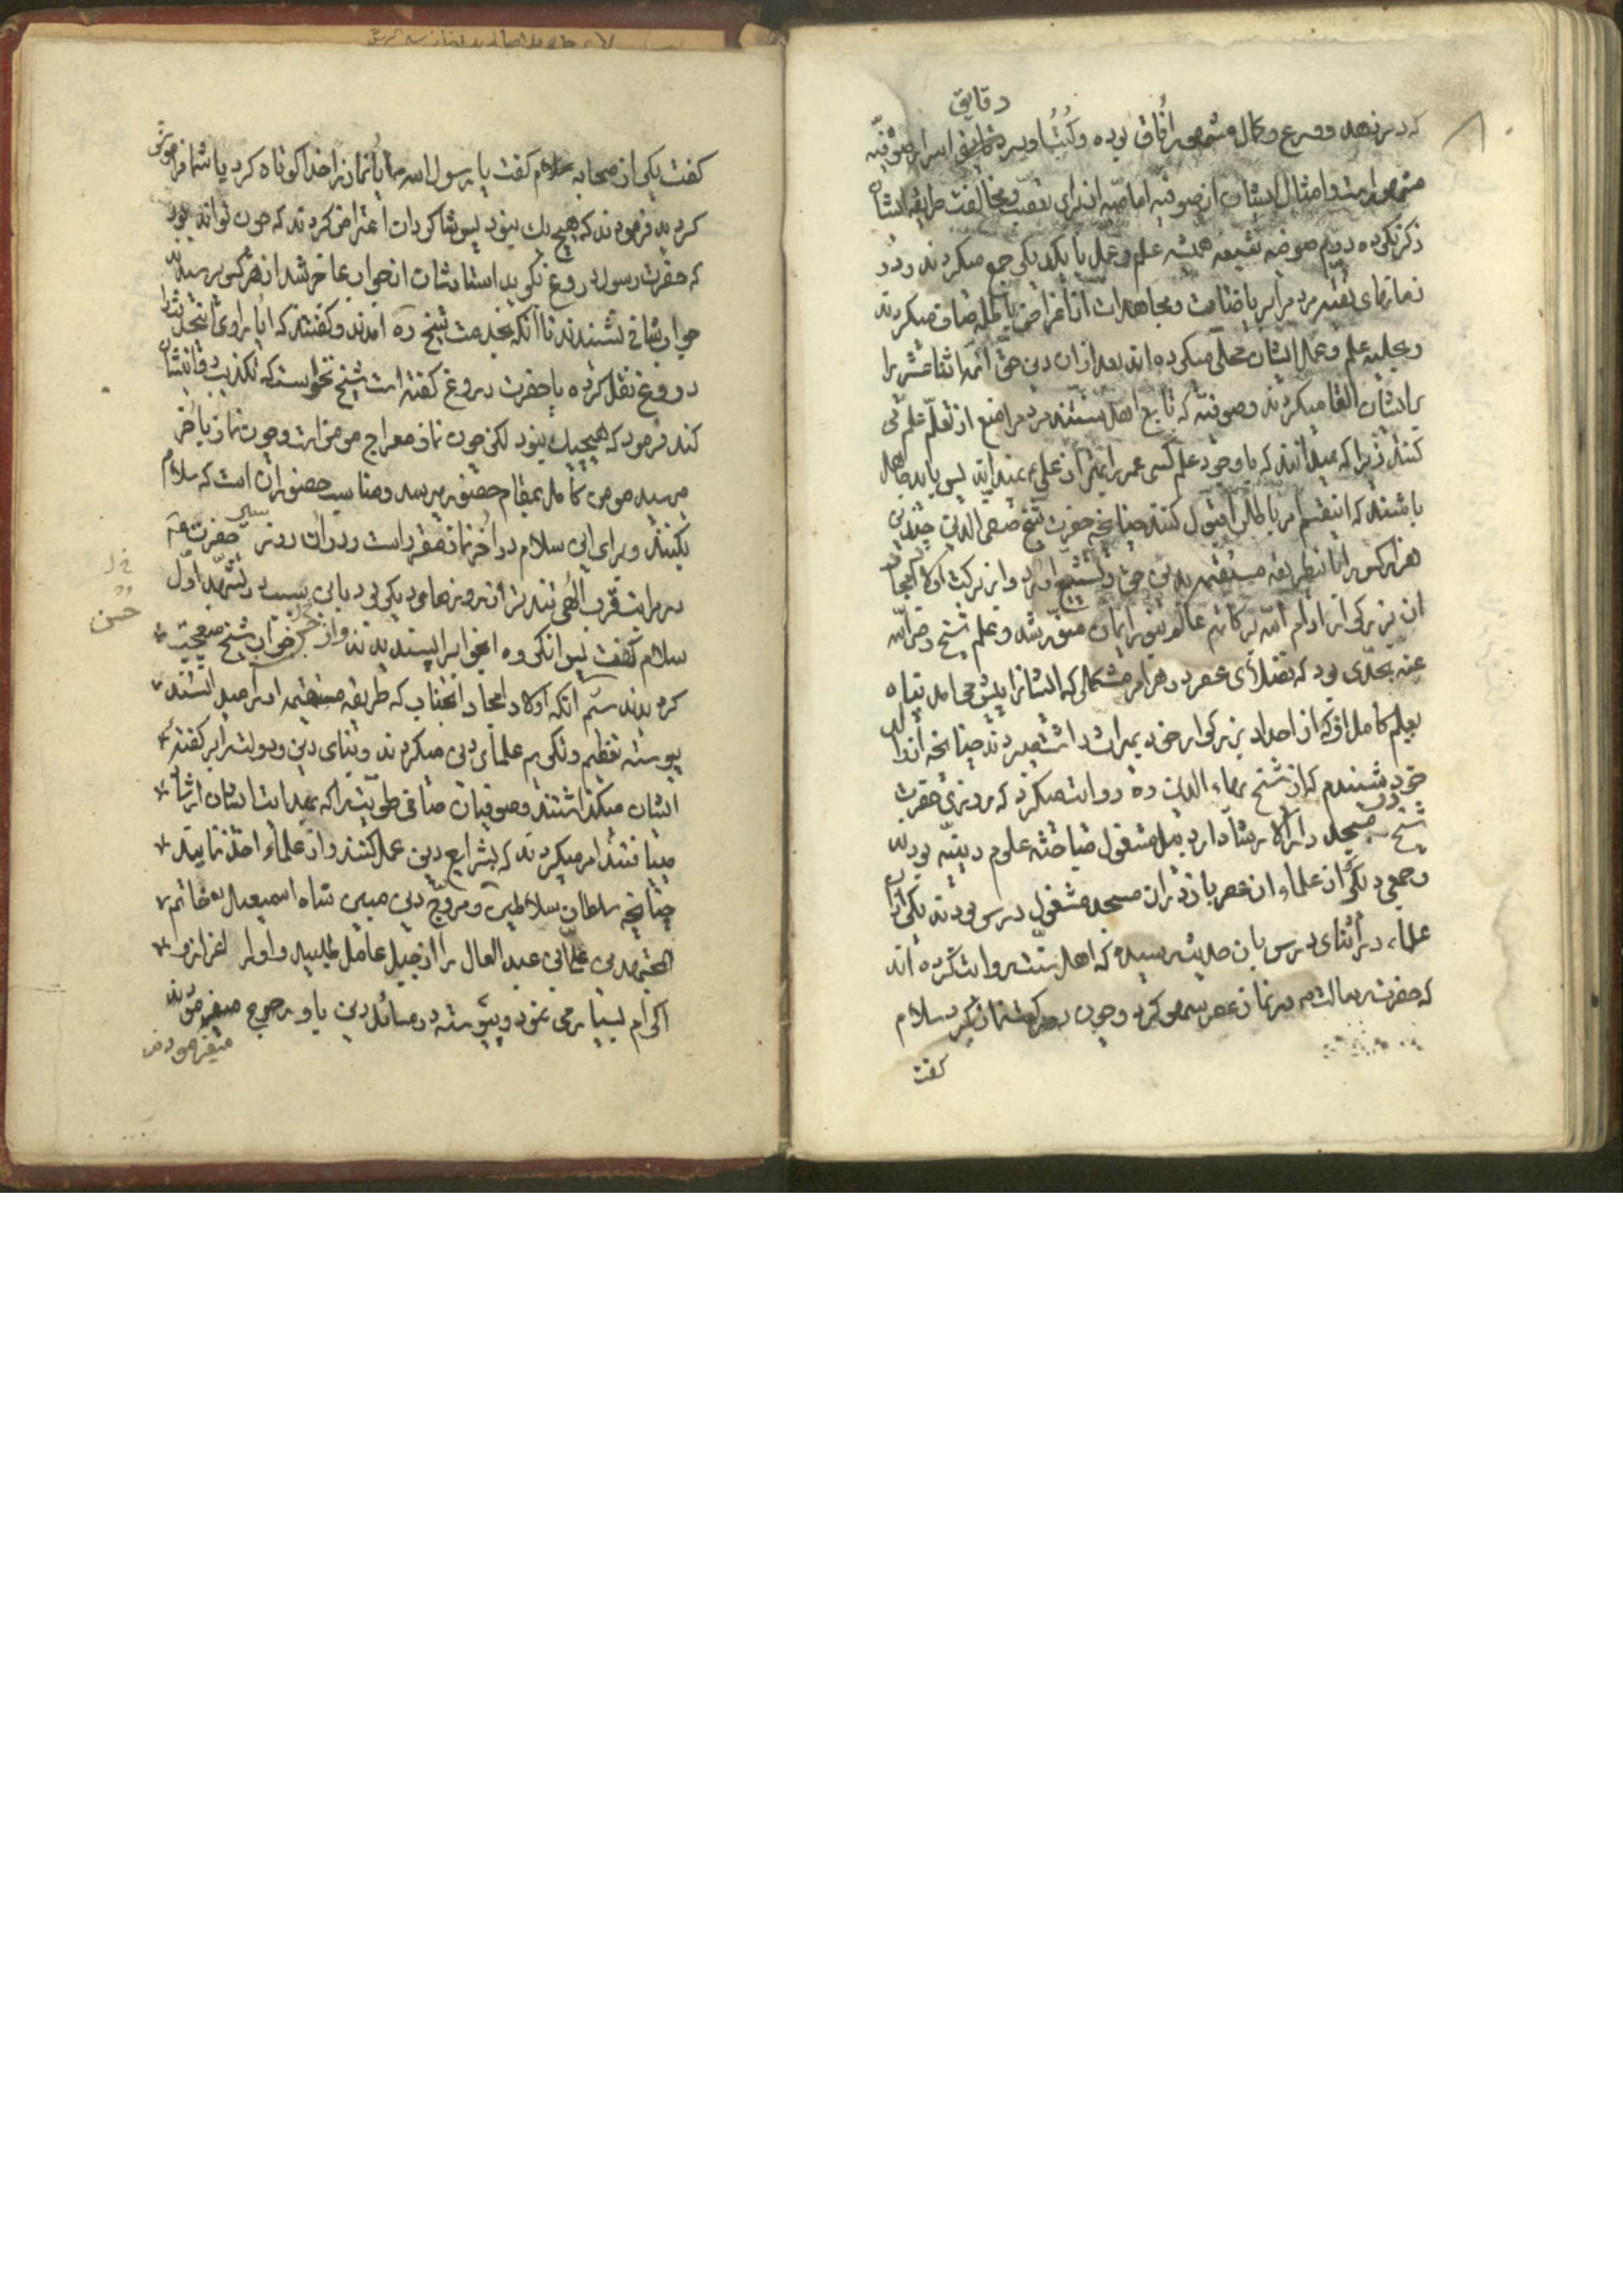 دقایق
که در زهد و ورع و کمال مشهور آفاق بوده و کتب او در دقایق اسرار صوفیه
مشهور است و امثال ایشان از صوفیه اما عامه از برای تعصب و مخالفت طریقه ایشان
ذکر نکرده دویم صوفیه شیعه همیشه علم و عمل با یکدیگر جمع میکردند و در
زمانهای تقیه مردم را بریاضات و مجاهدات از اغراض باطله صاف میکردند
و بحلیه علم و عمل ایشان محلی میکرده اند بعد از ان دین حق ائمه اثنا عشر را
برایشان القا میکردند و صوفیه که تابع اهل سنتند مردم را منع از تعلم علم می
کنند زیرا که میدانند که با وجود علم کسی عمر را بهتر از علی ع نمیداند پس باید جاهل
باشند که اینقسم امر باطلی را قبول کنند چنانچه حضرت شیخ صفی الدین چندین
هزار کس را باینطریقه مستقیمه بدین حق تشیع اورد و از برکت اولاد امجاد
ان بزرگوار ادام الله برکاتهم عالم بنور ایمان منور شد و علم شیخ رضی الله
عنه بحدی بود که فضلای عصر در هر امر مشکلی که ایشانرا پیش می امد پناه
بعلم کامل او که از اجداد بزرگوار خود بمیراث داشت میبردند چنانچه از والد
خود شنیدم که از شیخ بهاء الدین ره روایت میکرد که روزی حضرت
شیخ در مسجد دارالارشاد اردبیل مشغول مباحثه علوم دینیه بودند
و جمعی دیگر از علماء ان عصر باز در ان مسجد مشغول درس بودند یکی از ان
علماء در اثنای درس باین حدیث رسید که اهل سنت روایت کرده اند
که حضرت رسالت ص در نماز عصر سهو کرد و چون دو رکعت نماز کرد سلام
گفت
گفت یکی از صحابه گفت یا رسول الله ایا نماز را خدا کوتاه کرد یا شما فراموش
کردید فرمودند که هیچ یک نبود پس شاگردان اعتراض کردند که چون تواند بود
که حضرت رسول دروغ نگوید استاد ایشان از جواب عاجز شد از هر کس پرسیدند
جواب شافی نشنیدند تا آنکه بخدمت شیخ ره امدند و گفتند که ایا راوی اینجدیث
دروغ نقل کرده یا حضرت دروغ گفته است شیخ نخواست که تکذیب
کند فرمود که هیچیک نبود لکن چون نماز معراج مومن است و چون نماز باخر
میرسد مومن کامل بمقام حضور میرسد و مناسب حضور ان است که سلام
بکنند و برای این سلام در اخر نماز مقرر است و در ان روز سیر حضرت در
مراتب قرب الهی تند تر از روزهای دیگر
سلام گفت پس انگروه اینجواب را پسندیدند و از جواب شیخ تعجب
کردند سیم آنکه اولاد امجاد انجناب که طریقه مستقیمه او را میدانستند
پیوسته تعظیم و تکریم علمای دین میکردند و بنای دین و دولت را بر گفته
ایشان میگذاشتند و صوفیان صافی طویت را که بهدایت ایشان ارشاد
میافتند امر میکردند که بشرایع دین عمل کنند و از علماء اخذ نمایند
چنانچه سلطان سلاطین و مروج دین مبین شاه اسمعیل خاتم
المجتهدین علی بن عبد العال را از جبل عامل طلبید و او را اعزاز و
اکرام بسیار می نمود و پیوسته در مسائل دین باو رجوع میفرمودند
میفرمودند